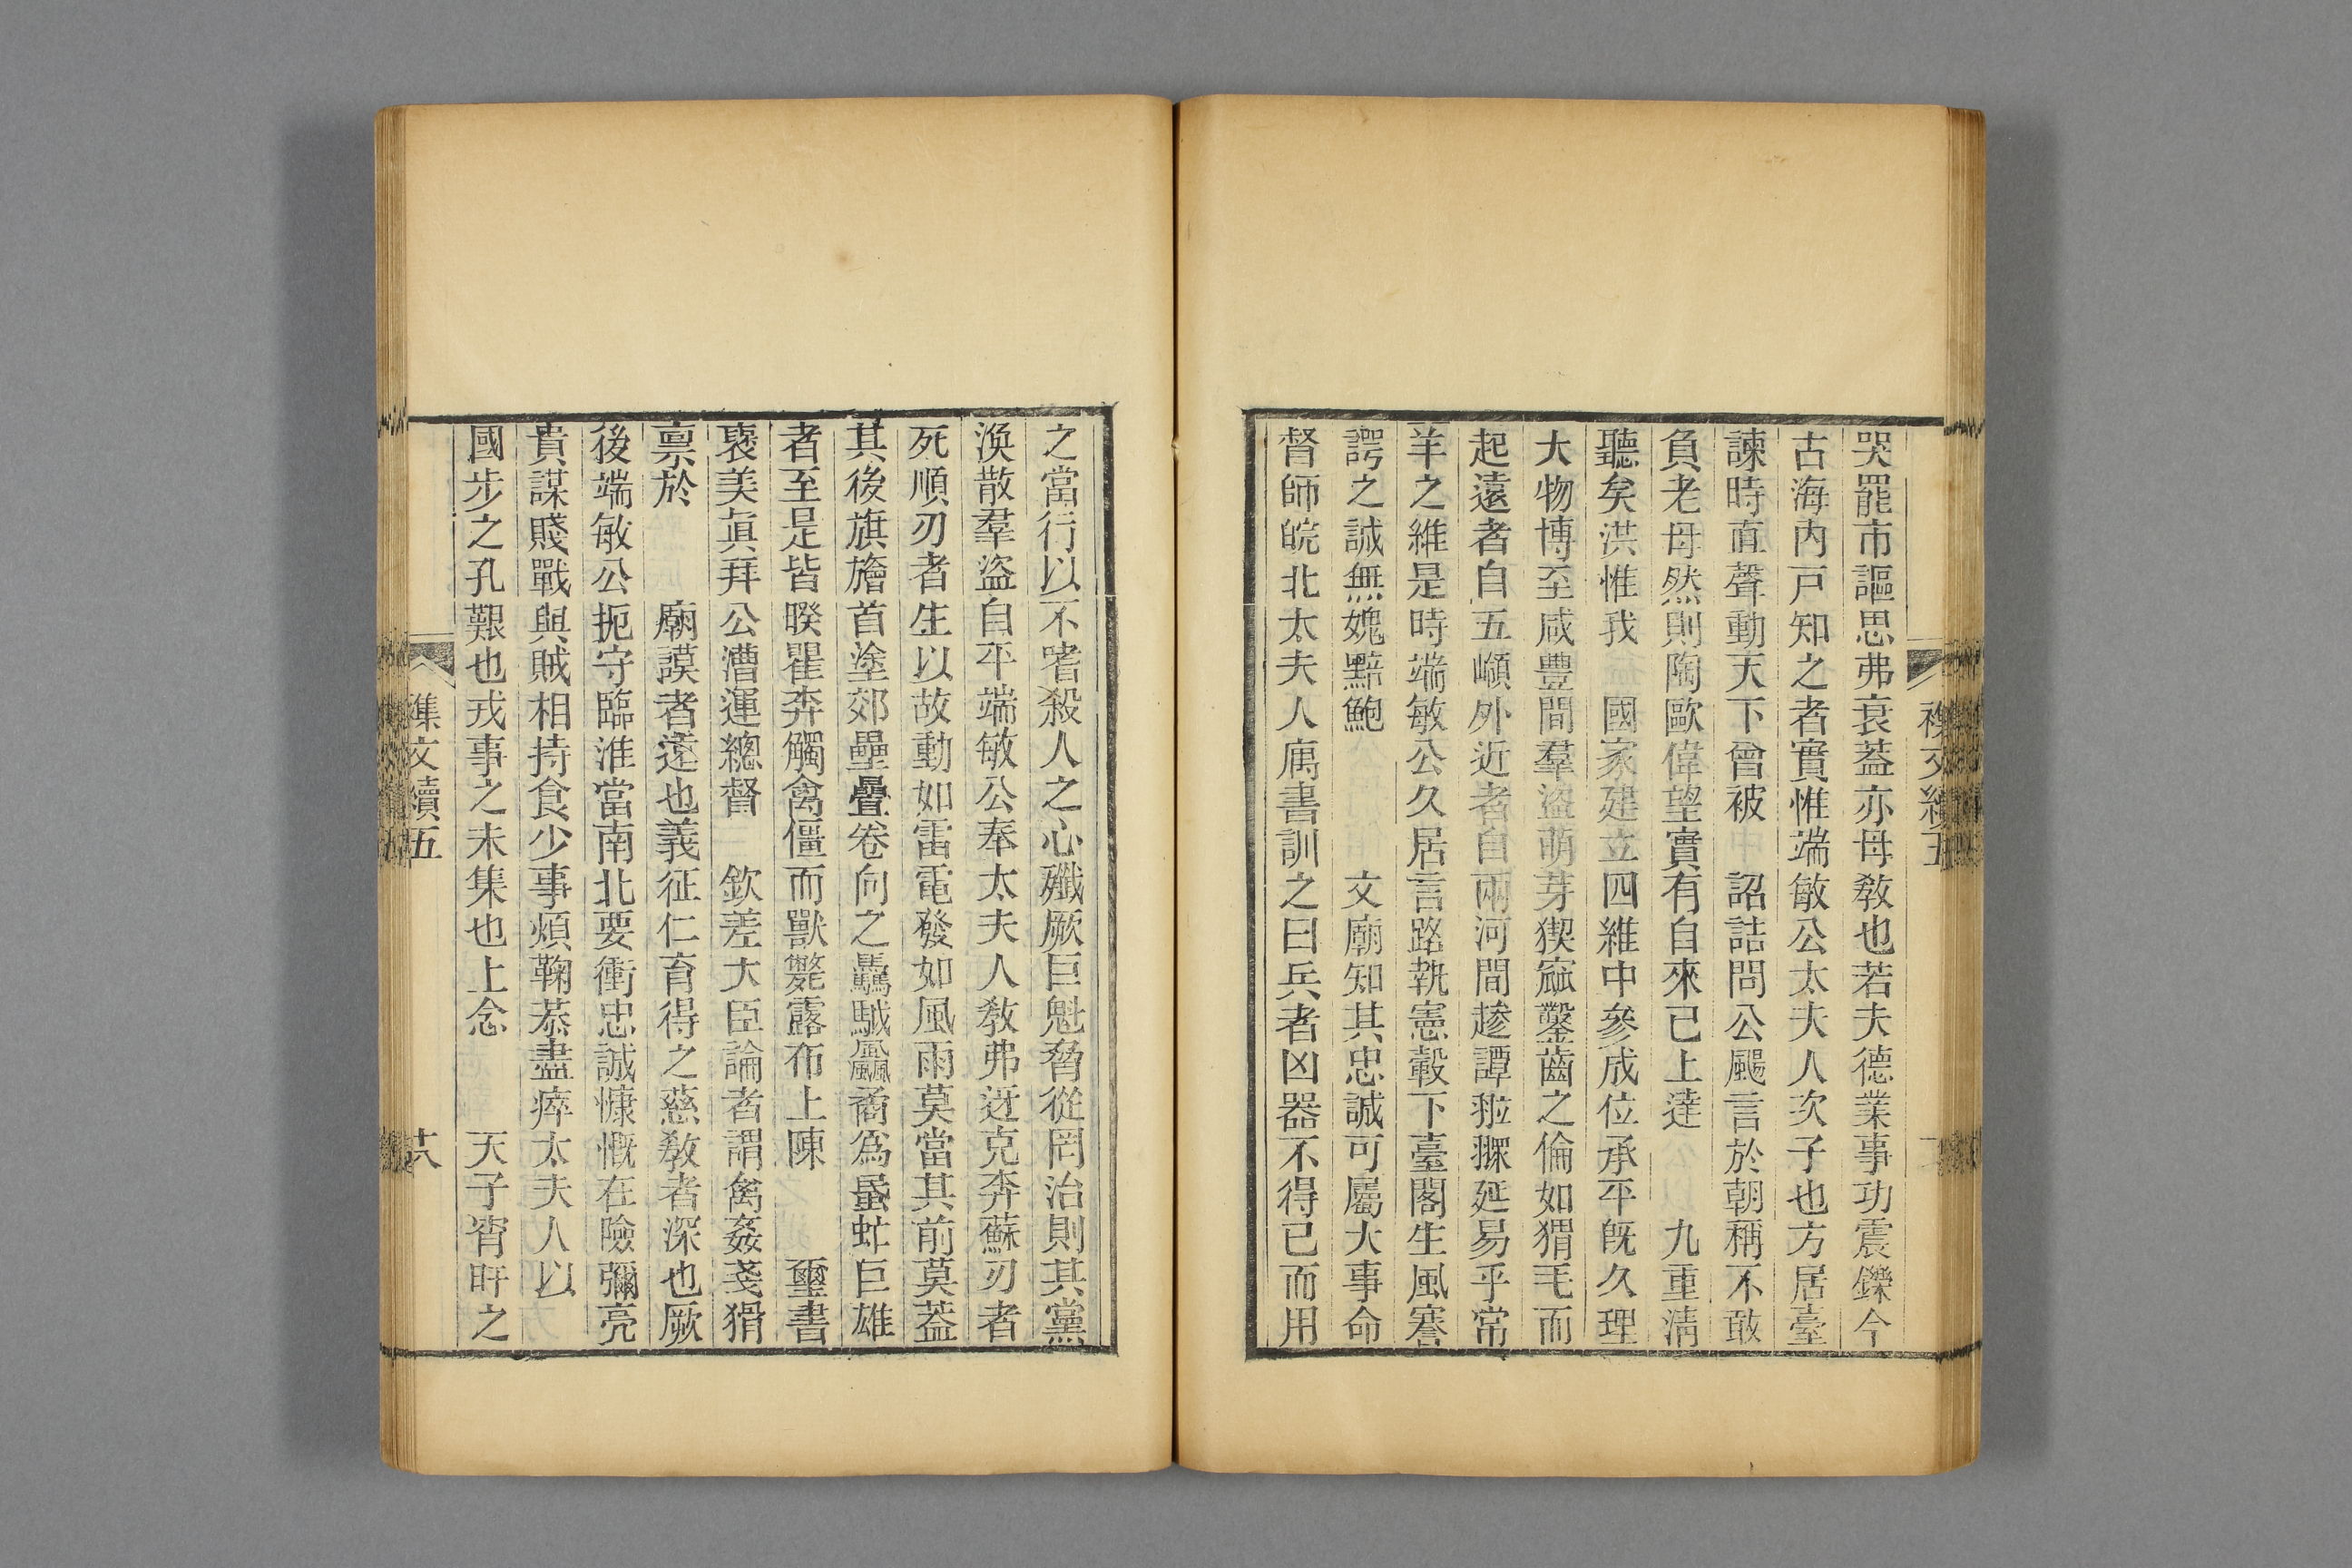 哭罷市謳思弗衰葢亦母敎也若夫德業事功震鑠今
古海內戸知之者實惟端敏公太夫人次子也方居臺
諫時直聲動天下曾被 詔詰問公颺言於朝稱不敢
負老母然則陶歐偉望實有自來已上達 九重淸
聽矣洪惟我 國家建立四維中參成位承平旣久理
大物博至咸豐間羣盜萌芽猰窳鑿齒之倫如猬毛而
起遠者自五嶺外近者自兩河間趁譚 延易乎常
羊之維是時端敏公久居言路執憲轂下臺閣生風謇
諤之誠無媿黯鮑 文廟知其忠誠可屬大事命
督師皖北太夫人寓書訓之曰兵者凶器不得已而用
之當行以不嗜殺人之心殲厥巨魁脅從罔治則其黨
渙散羣盜自平端敏公奉太夫人敎弗迓克奔蘇刃者
死順刃者生以故動如雷電發如風雨莫當其前莫葢
其後旗旝首塗郊壘疊卷向之驫駥飍矞爲蜑蚘巨雄
者至是皆睽瞿奔觸禽僵而獸斃露布上陳 璽書
襃美眞拜公漕運總督 欽差大臣論者謂禽姦戔猾
禀於 廟謨者遠也義征仁育得之慈敎者深也厥
後端敏公扼守臨淮當南北要衝忠誠慷慨在險彌亮
貴謀賤戰與賊相持食少事煩鞠恭盡瘁太夫人以
國步之孔艱也戎事之未集也上念 天子宵旰之
集文續五
十八